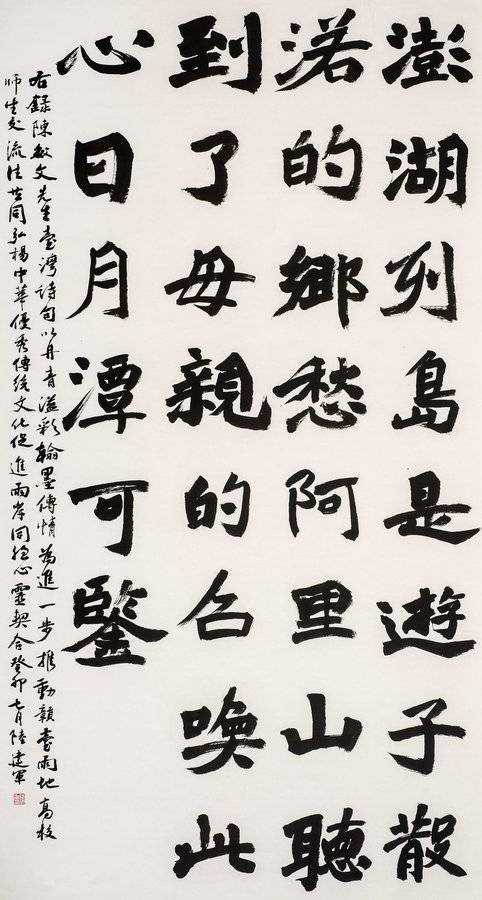 澎湖列島是遊子散
落的鄉愁阿里山聽
到了母親的召喚此
心日月潭可鑒
右錄陳敏文先生臺灣詩句以丹青溢彩翰墨傳情為進一步推動贛臺兩地高校
师生交流共同弘楊中華優秀傳統文化促進兩岸同胞心靈契合癸卯七月陸建軍